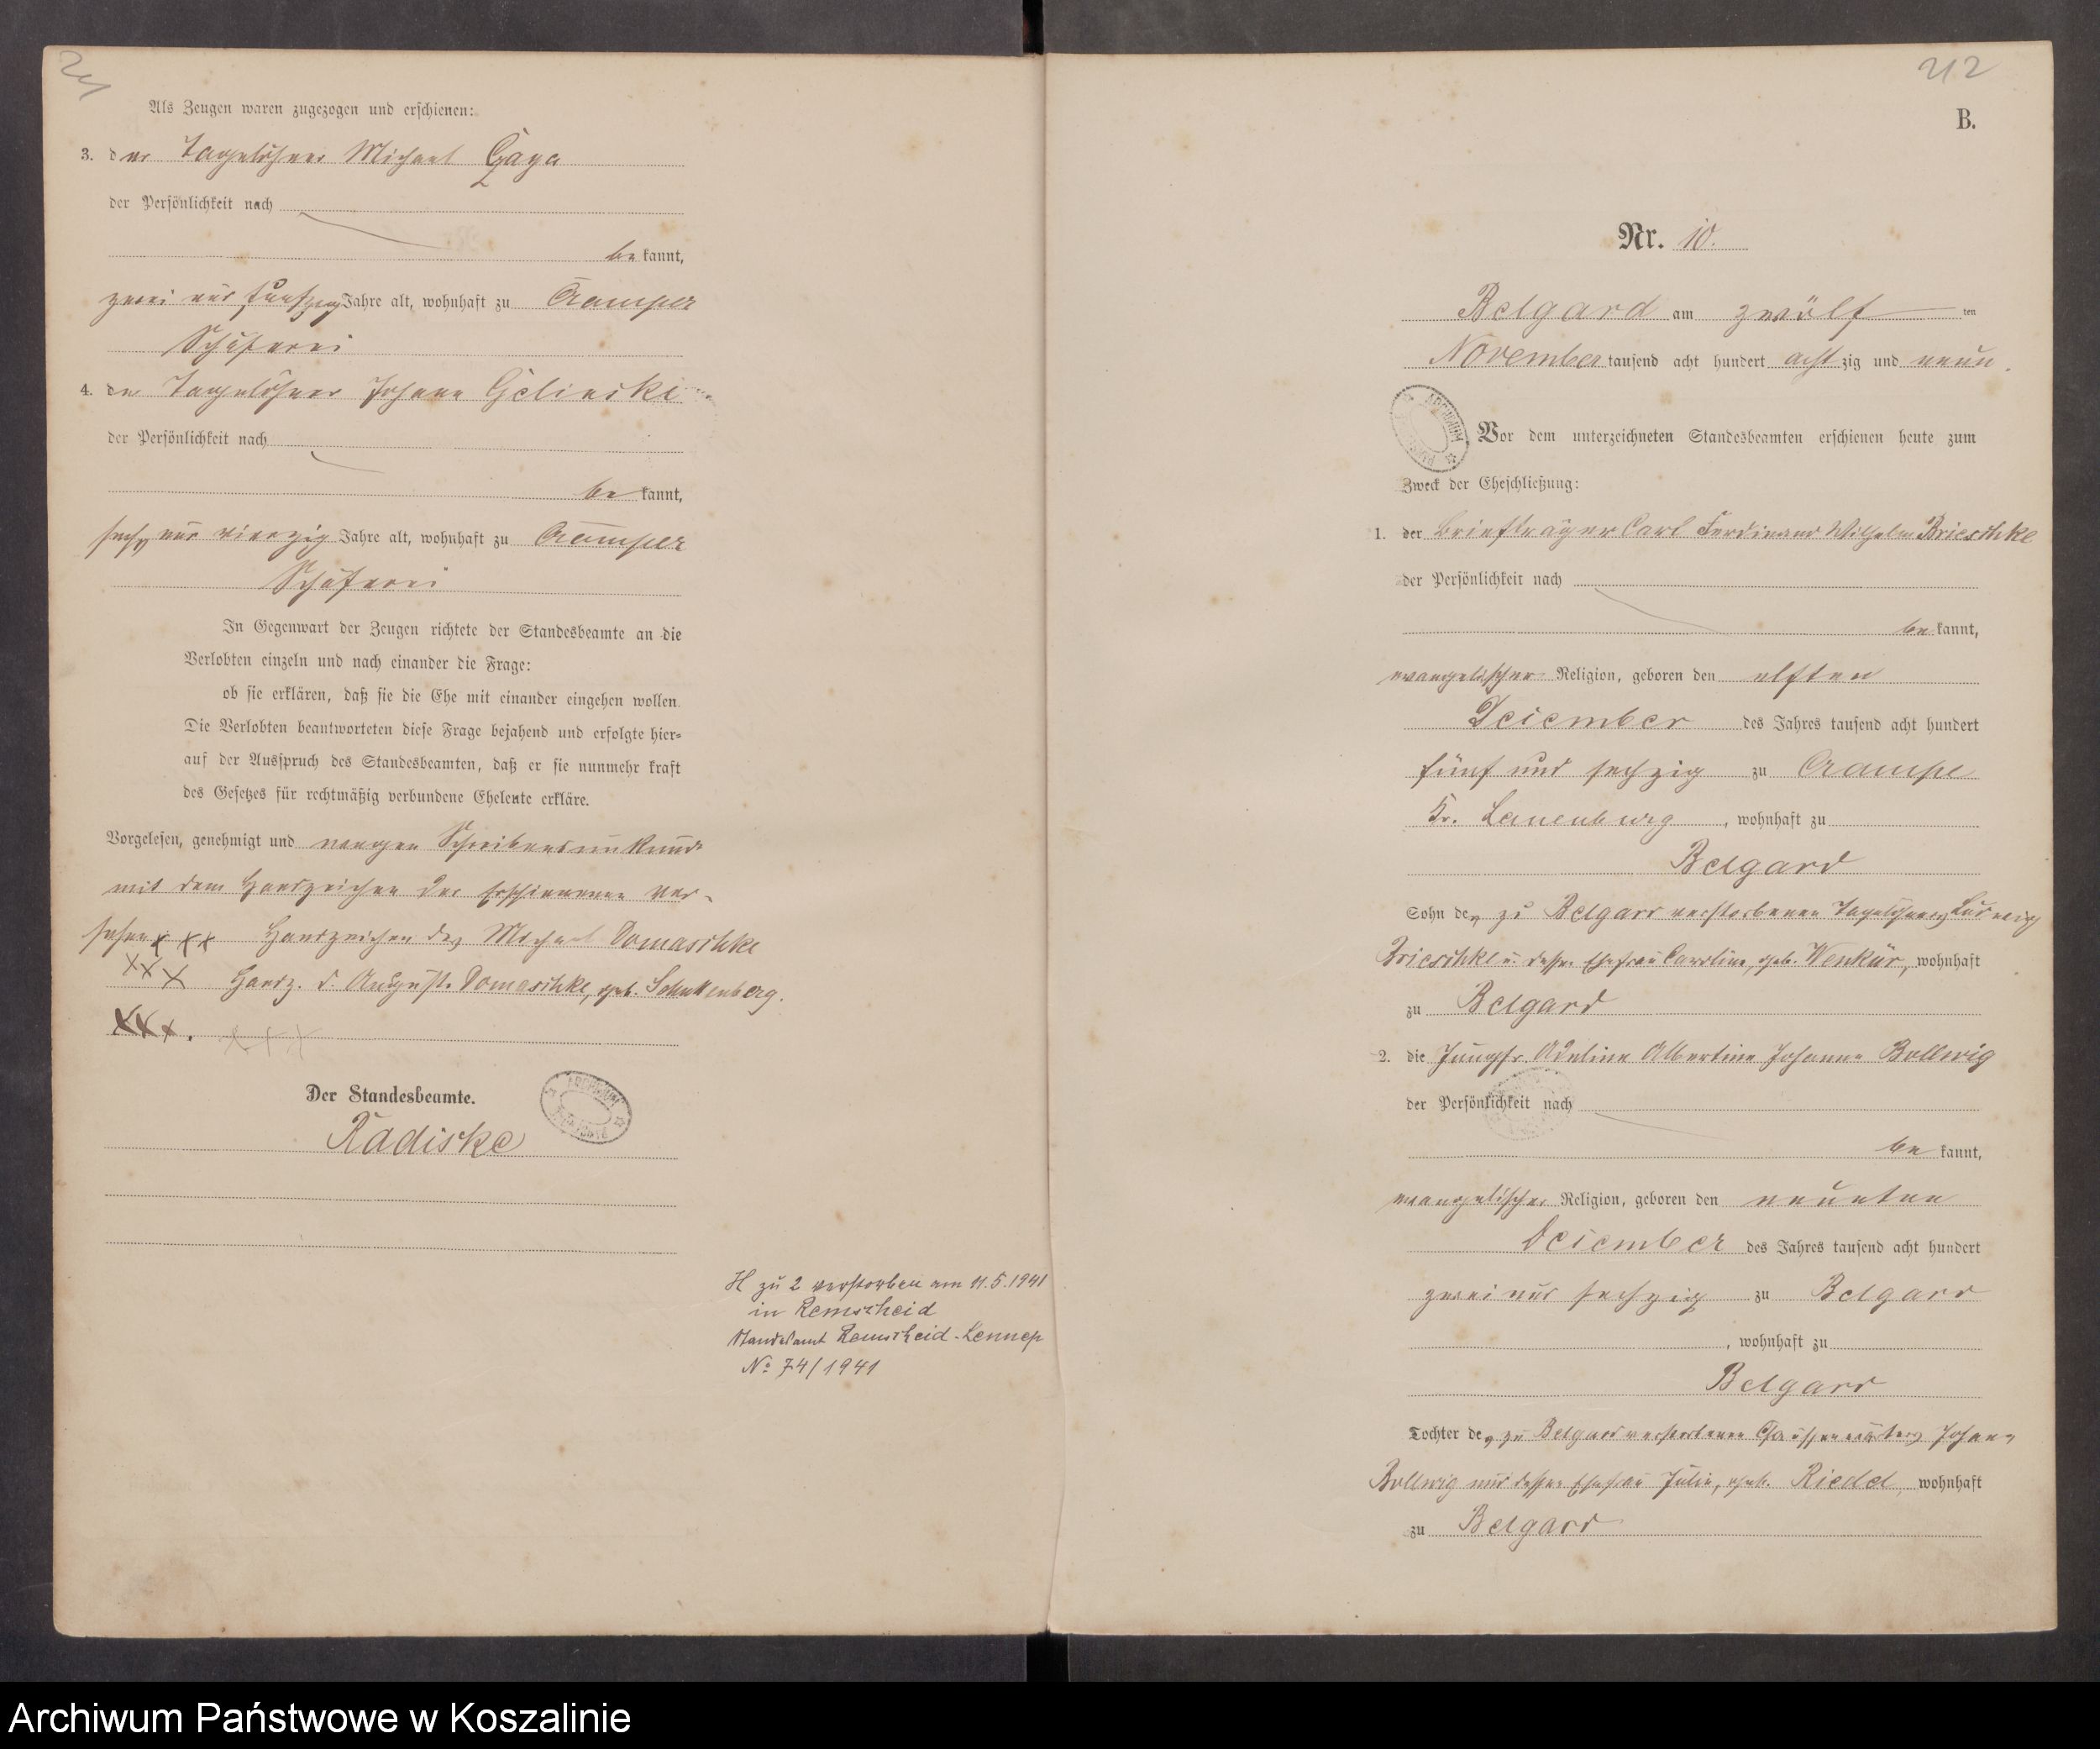 21
Als Zeugen waren zugezogen und erschienen:
3. der Tagelöhner Michael Gaga
der Persönlichkeit nach
be kannt,
zwei und fünfzig Jahre alt, wohnhaft zu Cramper
Schäferei
4. der Tagelöhner Johann Gelinski
der Persönlichkeit nach
be kannt,
sechs und vierzig Jahre alt, wohnhaft zu Cramper
Schäferei
In Gegenwart der Zeugen richtete der Standesbeamte an die
Verlobten einzeln und nach einander die Frage:
ob sie erklären, daß sie die Ehe mit einander eingehen wollen.
Die Verlobten beantworteten diese Frage bejahend und erfolgte hier-
auf der Ausspruch des Standesbeamten, daß er sie nunmehr kraft
des Gesetzes für rechtmäßig verbundene Eheleute erkläre.
Vorgelesen, genehmigt und wegen Schreibensunkunde
mit dem Handzeichen der Erschienenen ver-
sehen xxx Handzeichen des Michael Domaschke
xxx Handz. d. Auguste Domaschke, geb. Schukkenberg.
xxx. xxx
Der Standesbeamte.
Radiske
H zu 2 verstorben am 11.5.1941
in Remscheid
Standesamt Remscheid-Lennep
No 74/1941
212
B.
Nr. 10.
Belgard am zwölf ten
November tausend acht hundert acht zig und neun.
ARCHIWUM
Vor dem unterzeichneten Standesbeamten erschienen heute zum
Zweck der Eheschließung:
1. der Briefträger Carl Ferdinand Wilhelm Brieschke
der Persönlichkeit nach
be kannt,
evangelischer Religion, geboren den elften
Dezember des Jahres tausend acht hundert
fünf und sechzig zu Crampe
Kr. Lauenburg, wohnhaft zu
Belgard
Sohn des zu Belgard verstorbenen Tagelöhners Ludwig
Brieschke u. dessen Ehefrau Caroline, geb. Wenkür, wohnhaft
zu Belgard
2. die Jungfr. Adeline Albertine Johanne Bollwig
der Persönlichkeit nach
be kannt,
evangelischer Religion, geboren den neunten
Dezember des Jahres tausend acht hundert
zwei und sechzig zu Belgard
, wohnhaft zu
Belgard
Tochter des zu Belgard verstorbenen Chausseewärters Johann
Bollwig und dessen Ehefrau Julie, geb. Riedel, wohnhaft
zu Belgard
Archiwum Państwowe w Koszalinie